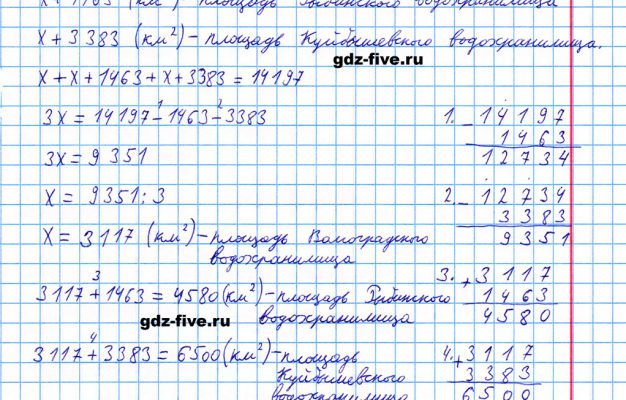 X + 1463 (км²) - площадь Рыбинского водохранилища
X + 3383 (км²) - площадь Куйбышевского водохранилища.
gdz-five.ru
X + X + 1463 + X + 3383 = 14197
3X = 14197 -¹ 1463 -² 3383
3X = 9351
X = 9351 : 3
X = 3117 (км²) - площадь Волгоградского
водохранилища
3
3117 + 1463 = 4580 (км²) - площадь Рыбинского
водохранилища
gdz-five.ru
4
3117 + 3383 = 6500 (км²) - площадь
Куйбышевского
водохранилища
1. - 14197
1463
12734
2. - 12734
3383
9351
3. + 3117
1463
4580
4. + 3117
3383
6500